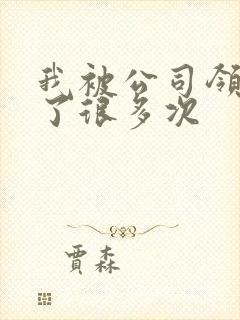 我被公司领
了很多次
贾森